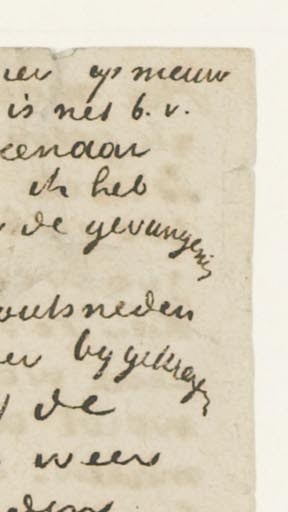 op nieuw
is net b.v.
kendaar
ik heb
de gevangenis
outsneden
er bygekregen
de
weer